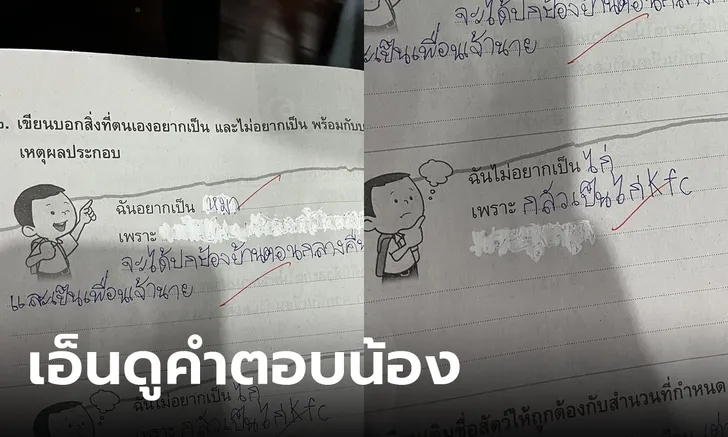 ๖. เขียนบอกสิ่งที่ตนเองอยากเป็น และไม่อยากเป็น พร้อมกับบ
เหตุผลประกอบ
ฉันอยากเป็น หมา
เพราะ
จะได้ปกป้องบ้านตอนกลางคืน
และเป็นเพื่อนเจ้านาย
ฉันไม่อยากเป็น ไก่
เพราะ กลัวเป็นไก่ Kfc
จะได้ปกป้องบ้านตอนกลางคืน
ละเป็นเพื่อนเจ้านาย
ฉันไม่อยากเป็น ไก่
เพราะ กลัวเป็นไก่ Kfc
ชื่อสัตว์ให้ถูกต้องกับสำนวนที่กำหนด
เอ็นดูคำตอบน้อง